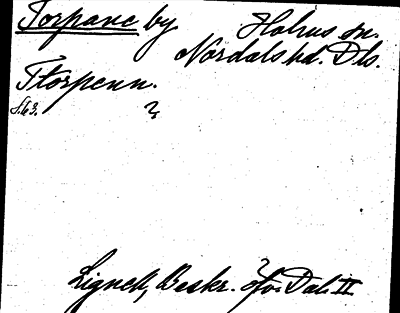 Torpane by Holms sn.
Nordals hd. Dls.
Torpenn.
S. 63. ?
Lignell, Beskr. öfv. Dal. II